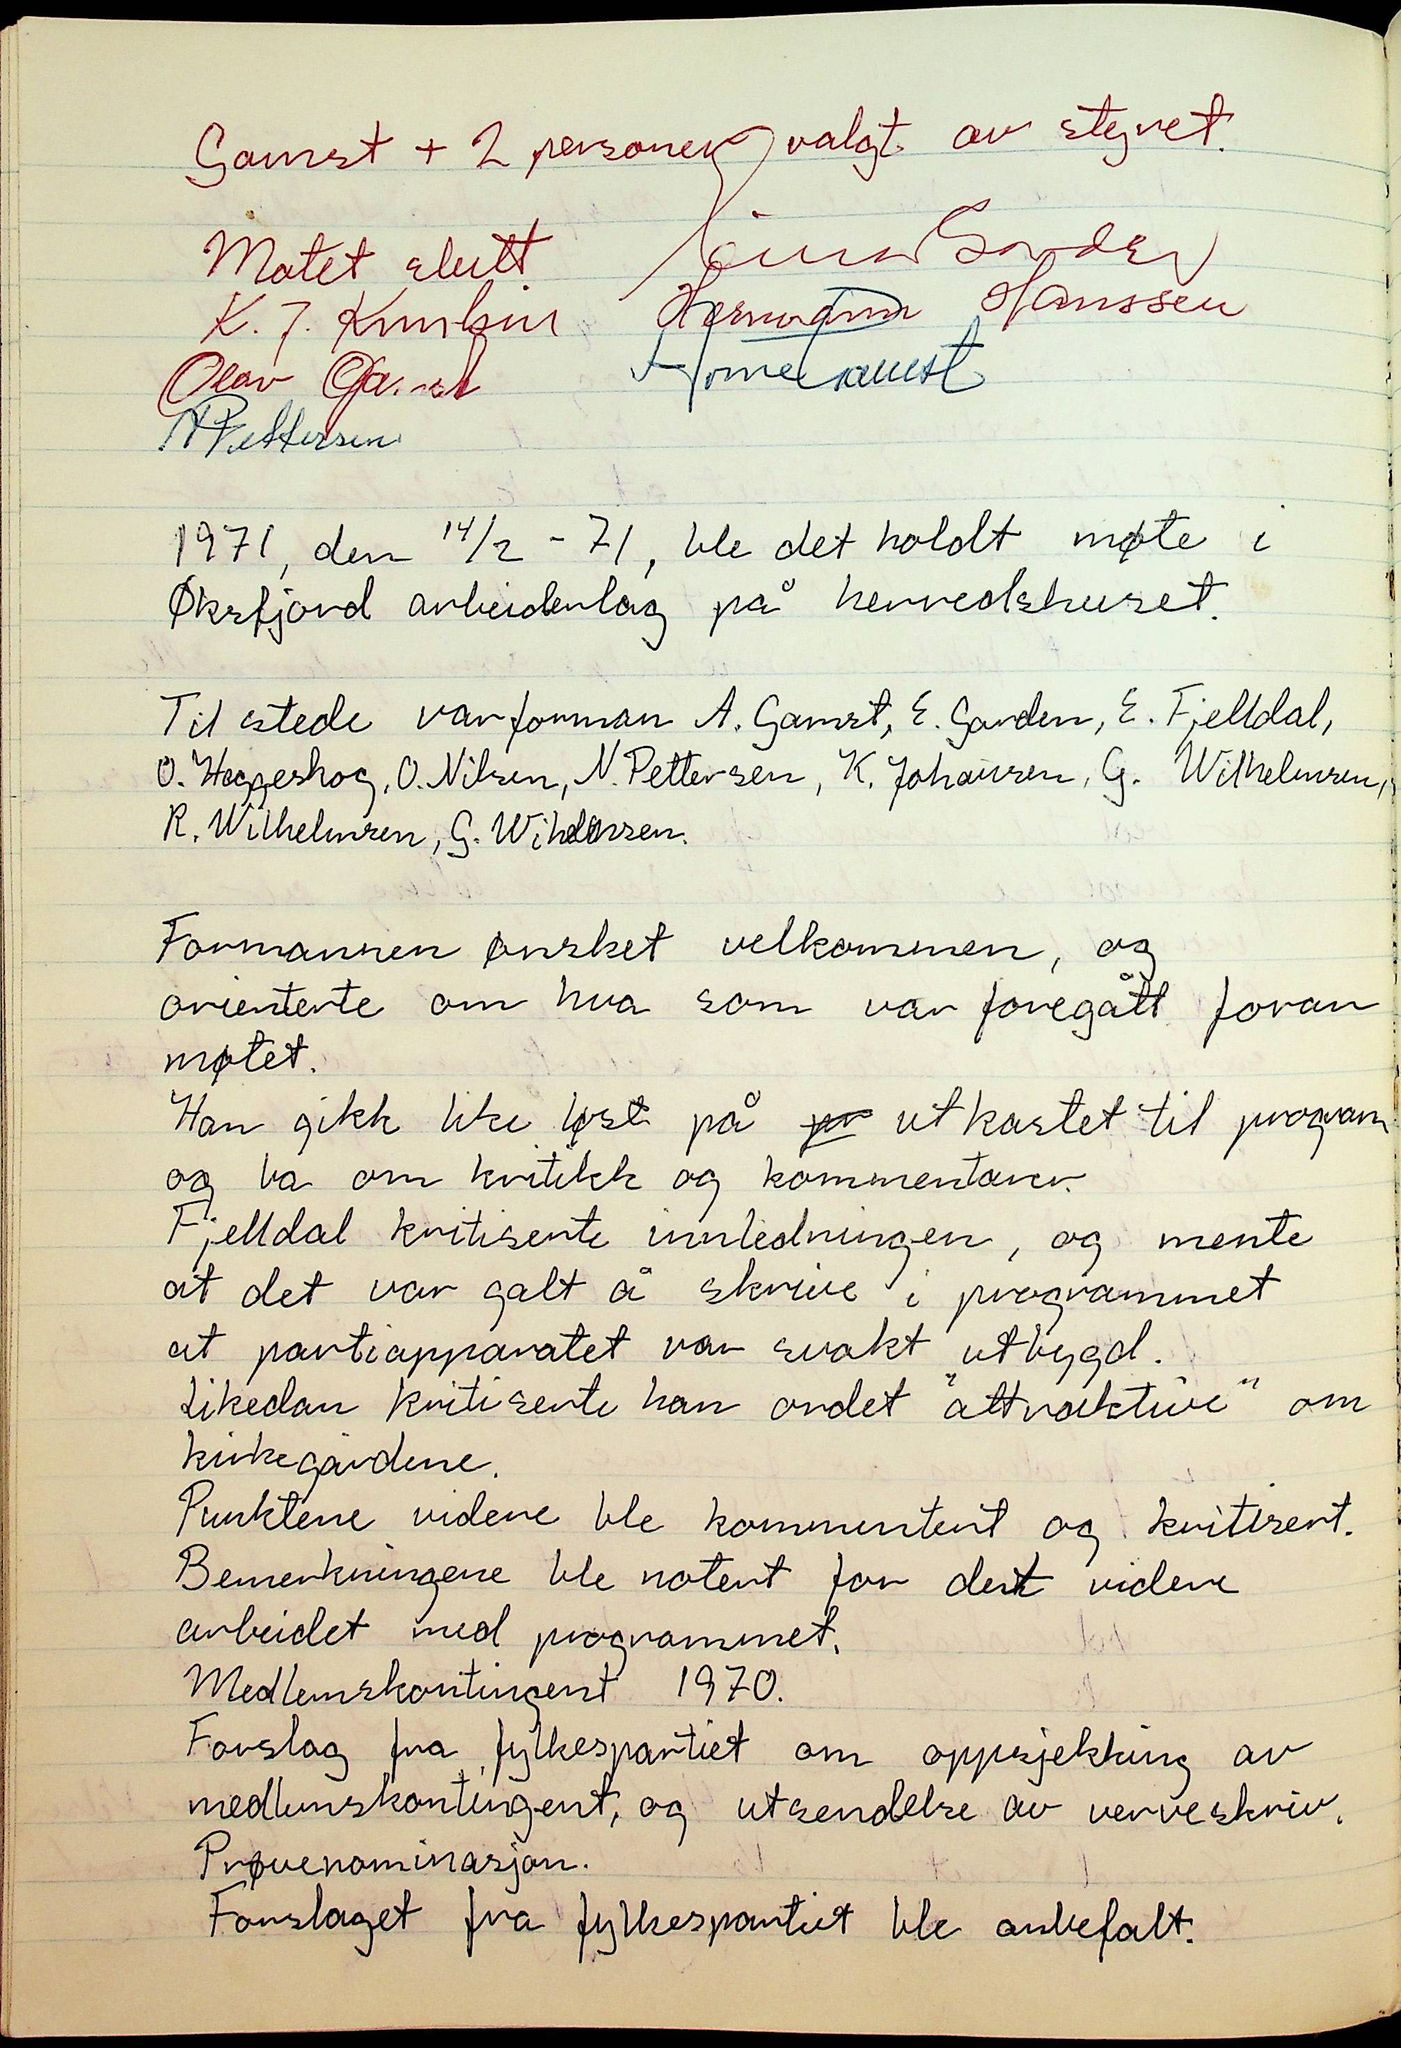 Gamst + 2 personer valgt av styret.
Møtet slutt
Hermann Hanssen
Olav Gamst
Arne Gamst
N Pettersen
1971, den 14/2 - 71, ble det holdt møte i
Øksfjord arbeiderlag på herredshuset.
Til stede var forman A. Gamst, E. Garden, E. Fjelldal,
O. Heggeskog, O. Nilsen, N. Pettersen, K. Johansen, G. Wilhelmsen,
R. Wilhelmsen, G.
Formannen ønsket velkommen, og
orienterte om hva som var foregått foran
møtet.
Han gikk like løst på pr utkastet til program
og ba om kritikk og kommentarer.
Fjelldal kritiserte innledningen, og mente
at det var galt å skrive i programmet
at partiapparatet var svakt utbygd.
Likedan kritiserte han ordet "attraktive" om
kirkegårdene.
Punktene videre ble kommentert og kritisert.
Bemerkningene ble notert for det videre
arbeidet med programmet.
Medlemskontingent 1970.
Forslag fra fylkespartiet om oppsjekking av
medlemskontingent, og utsendelse av verveskriv.
Prøvenominasjon.
Forslaget fra fylkespartiet ble anbefalt.